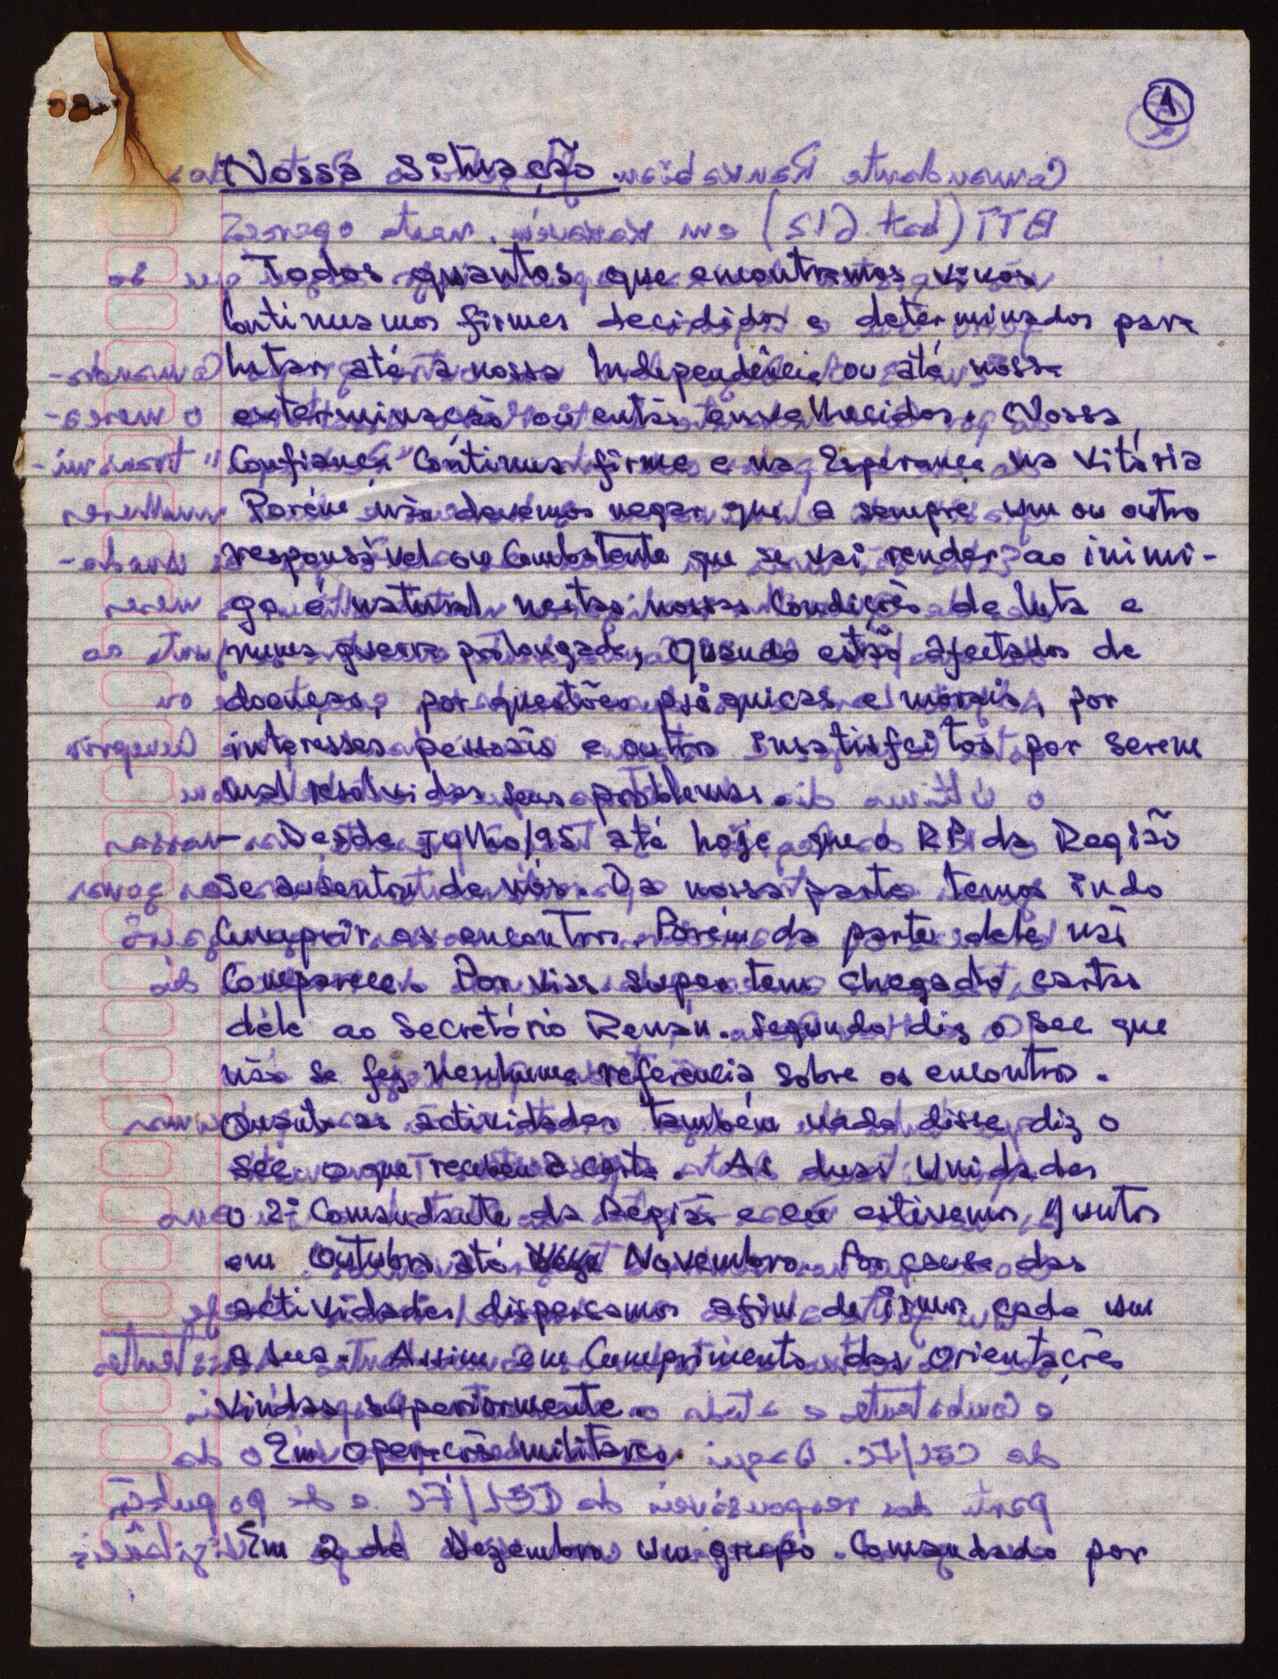 1
Nossa Situação.
Todos quantos que encontramos vivos
Continuamos firmes decididos e determinados para
lutar até a nossa Independência ou até nossa
exterminação ou então envelhecidos. Nossa
Confiança Continua firme e na Esperança na Vitória
Porém não devemos negar que a sempre um ou outro
responsável ou Combatente que se vai render ao inimi-
go é natural nestas nossas Condições de luta e
numa guerra prolongada, quando estão afectados de
doenças, por questões psíquicas e morais, por
interesses pessoais e outro insatisfeitos por serem
mal resolvidos seus problemas.
- Desde Julho/95 até hoje que o RP da Região
se ausentou de nós. Da nossa parte temos indo
Cumprir os encontros. Porém da parte dele não
Comparece. Por vias super tem chegado cartas
dele ao Secretório Renan. Segundo diz o Sec que
não se fez nenhuma referência sobre os encontros.
Quanto as actividades também nada disse diz o
Sec o que recebeu a carta. As duas Unidades
o 2º Comandante da Região e eu estivemos juntos
em Outubro até Novembro. Por causa das
actividades dispercamos afim de irmos cada um
a sua. Assim em Cumprimento das Orientações
vindas superiormente.
Em operações militares.
Em 2 de Dezembro um grupo Comandado por